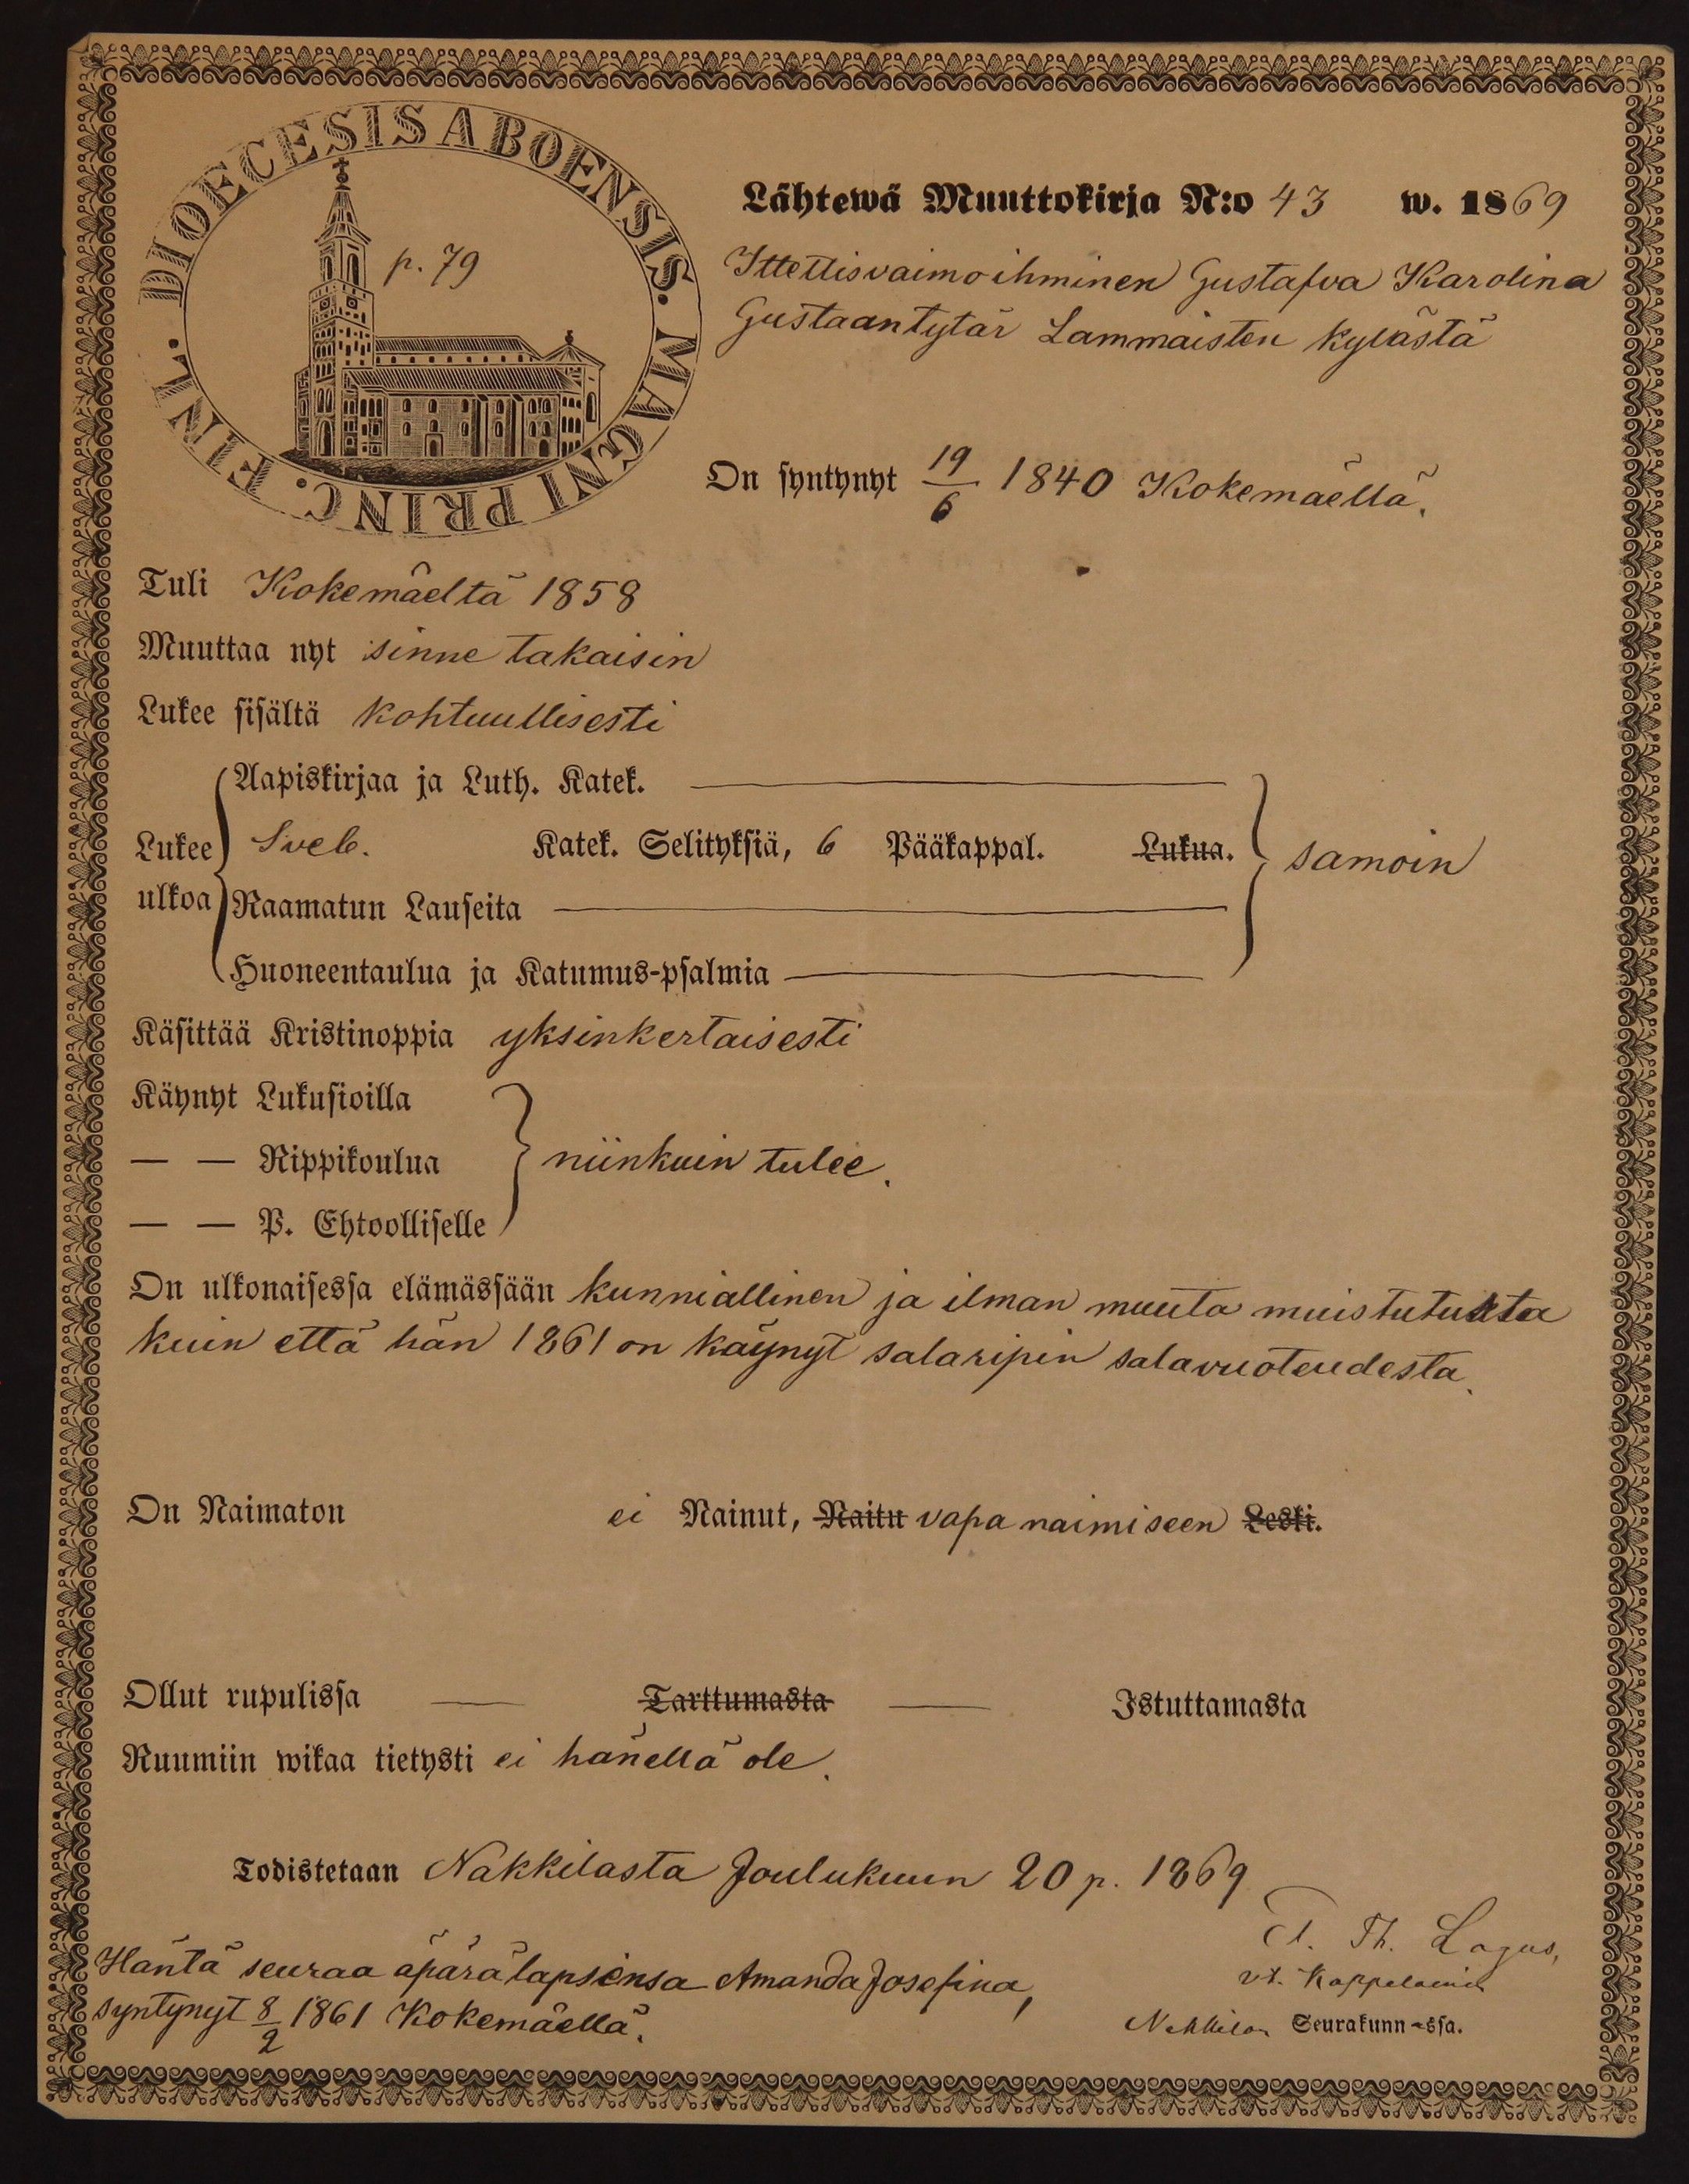 DIOECESIS ABOENSIS. MAGNI PRINC. FINL.
p. 79
Lähtewä Muuttokirja N:o 43 w. 1869
Ittellisvaimoihminen Gustafva Karolina
Gustaantytär Lammaisten kylästä
On syntynyt 19/6 1840 Kokemäellä.
Tuli Kokemäeltä 1858
Muuttaa nyt sinne takaisin
Lukee sisältä kohtuullisesti
Aapiskirjaa ja Luth. Katek.
Lukee ulkoa Sveb. Katek. Selityksiä, 6 Pääkappal. Lukua. samoin
Raamatun Lauseita
Huoneentaulua ja Katumus-psalmia
Käsittää Kristinoppia yksinkertaisesti
Käynyt Lukusioilla
— — Rippikoulua niinkuin tulee.
— — P. Ehtoolliselle
On ulkonaisessa elämässään kunniallinen ja ilman muuta muistutusta
kuin että hän 1861 on käynyt salaripin salavuoteudesta.
On Naimaton ei Nainut, Naitu vapa naimiseen Leski.
Ollut rupulissa — Tarttumasta — Istuttamasta
Ruumiin wikaa tietysti ei hänellä ole.
Todistetaan Nakkilasta Joulukuun 20 p. 1869
Th. Lagus,
vt. Kappelainen
Nakkilan Seurakunn-ssa.
Häntä seuraa äpärälapsensa Amanda Josefina,
syntynyt 8/2 1861 Kokemäellä.